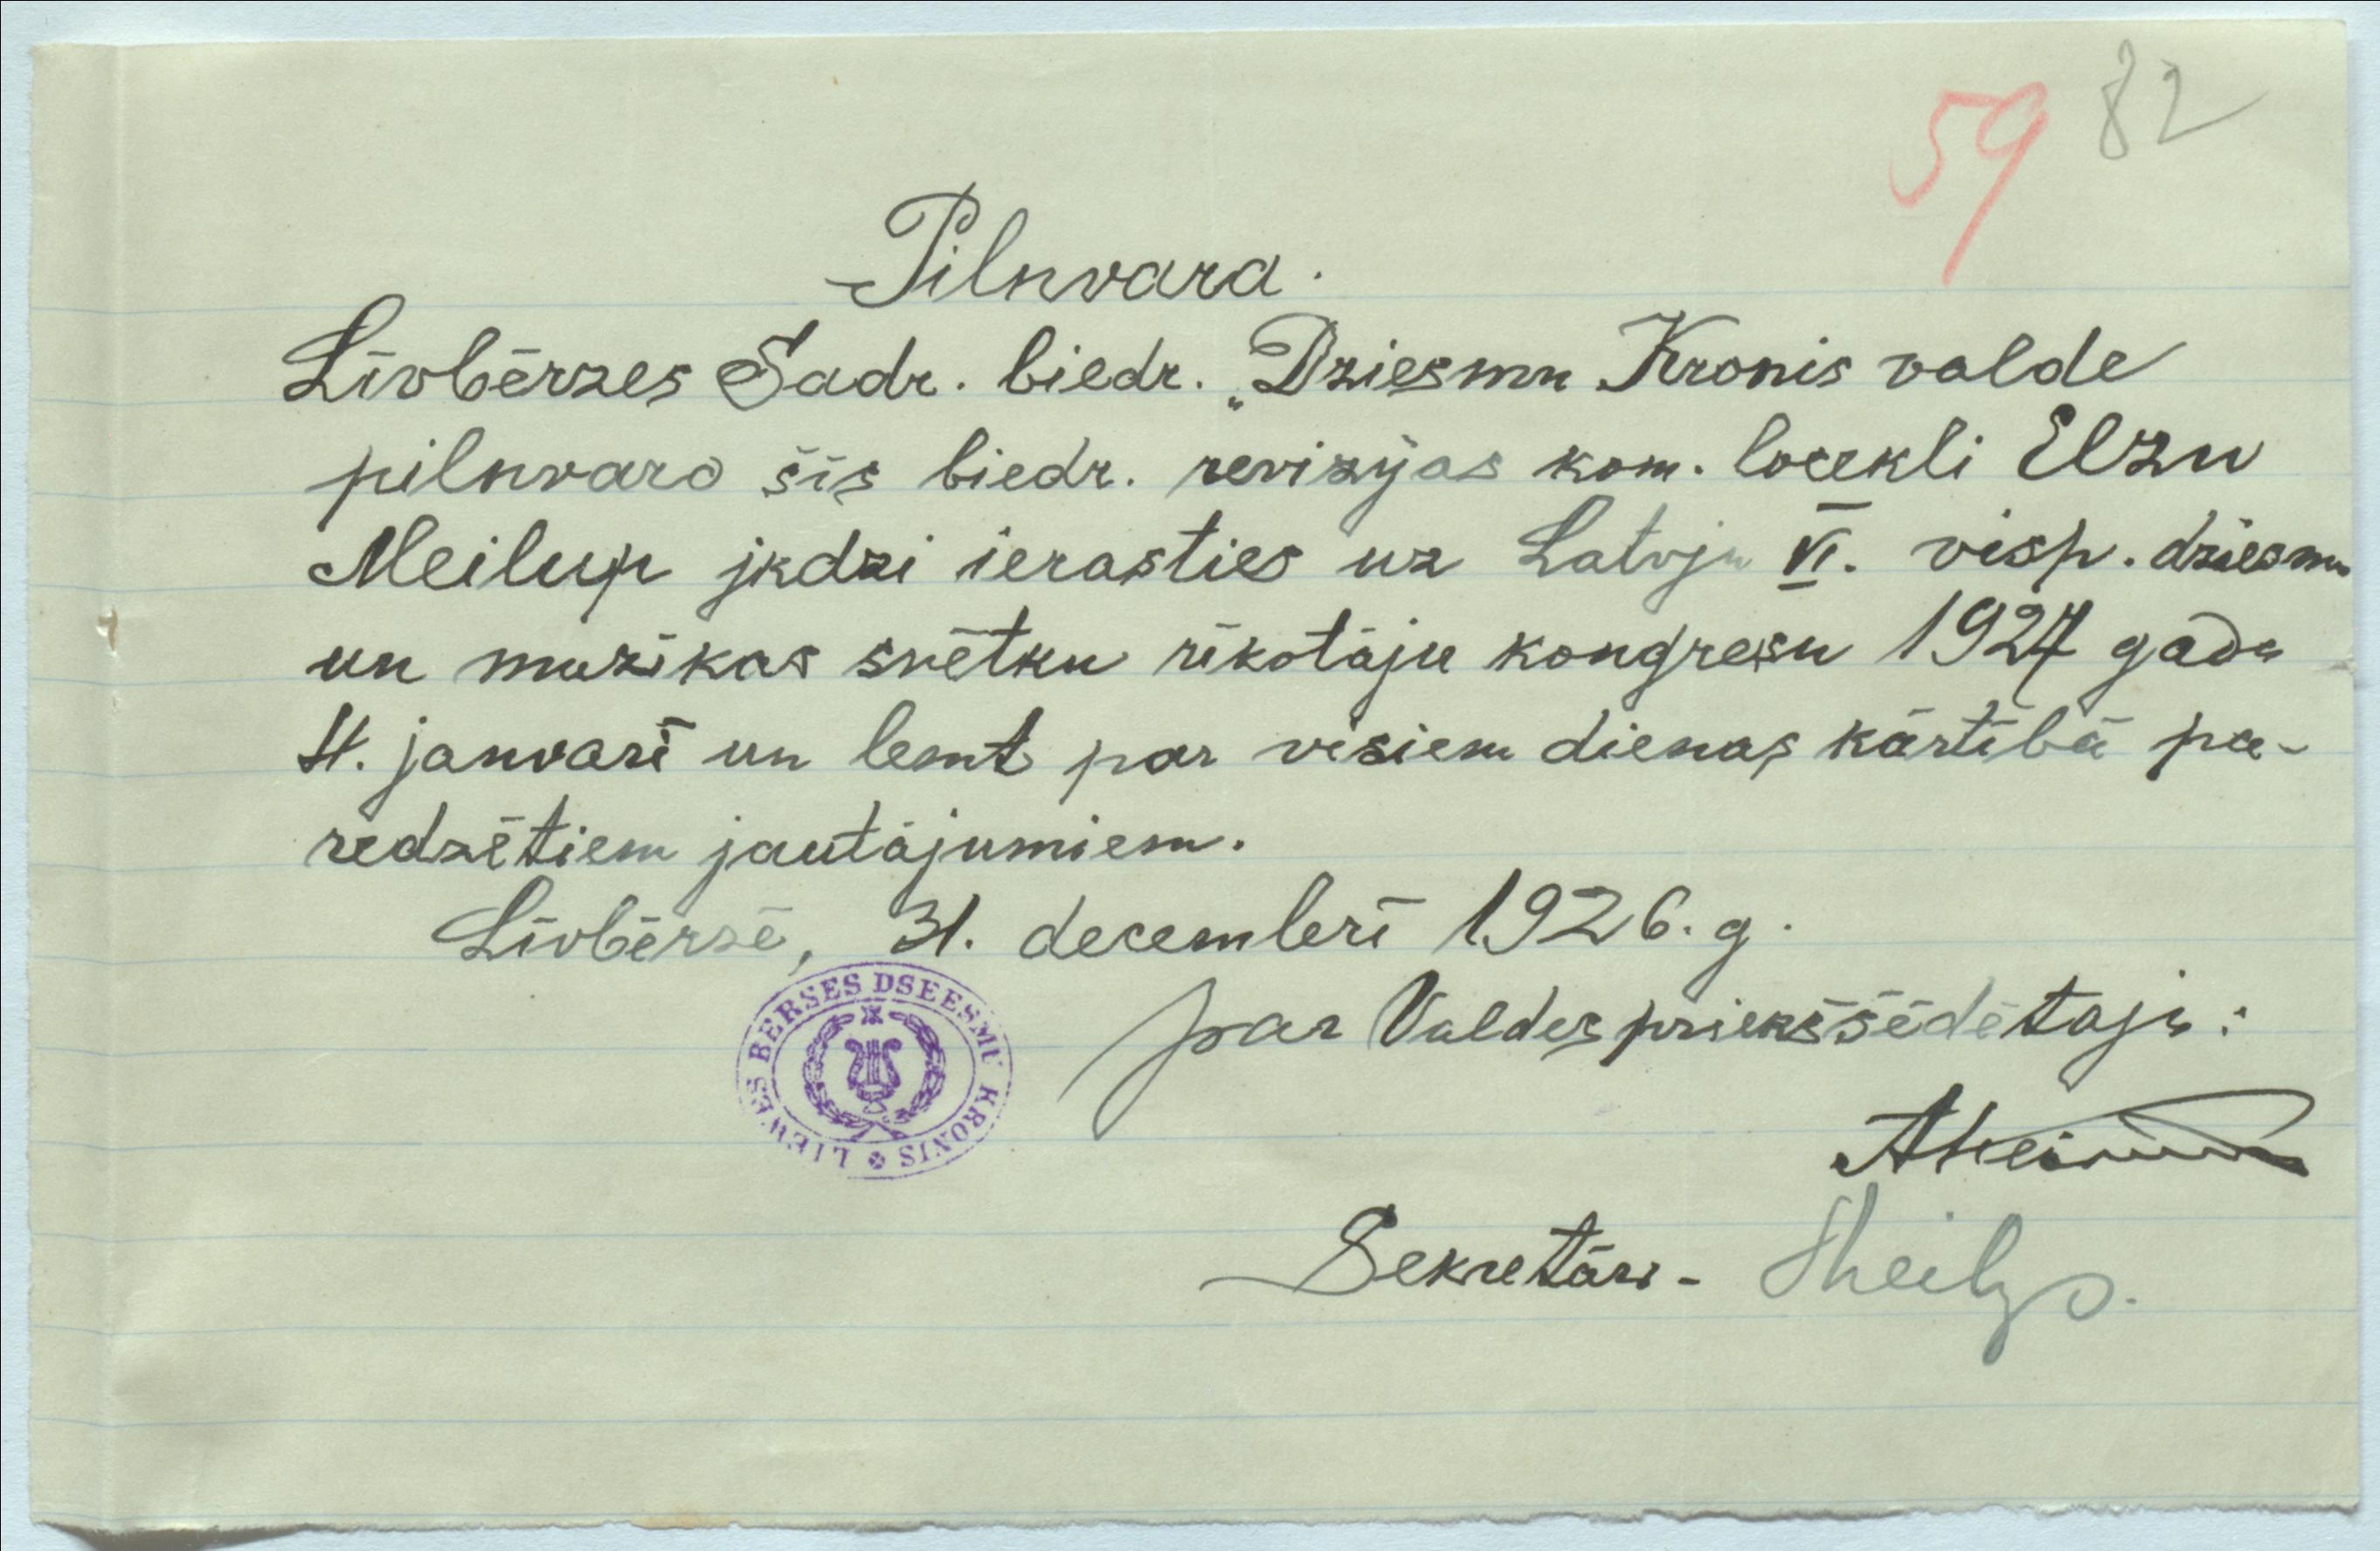 59 82
Pilnvara.
Līvbērzes Sadr. biedr. „Dziesmu Kronis valde
pilnvaro šīs biedr. revizijas kom. locekli Elzu
Meilup jkdzi ierasties uz Latvju VI. visp. dziesmu
un mūzikas svētku rīkotāju kongresu 1927 gada
4. janvarī un lemt par visiem dienas kārtībā pa-
redzētiem jautājumiem.
Līvbērzē, 31. decemberī 1926. g.
LIEWES BERSES DSEESMU KRONIS
par Valdes priekšsēdētaju:
Sekretārs -